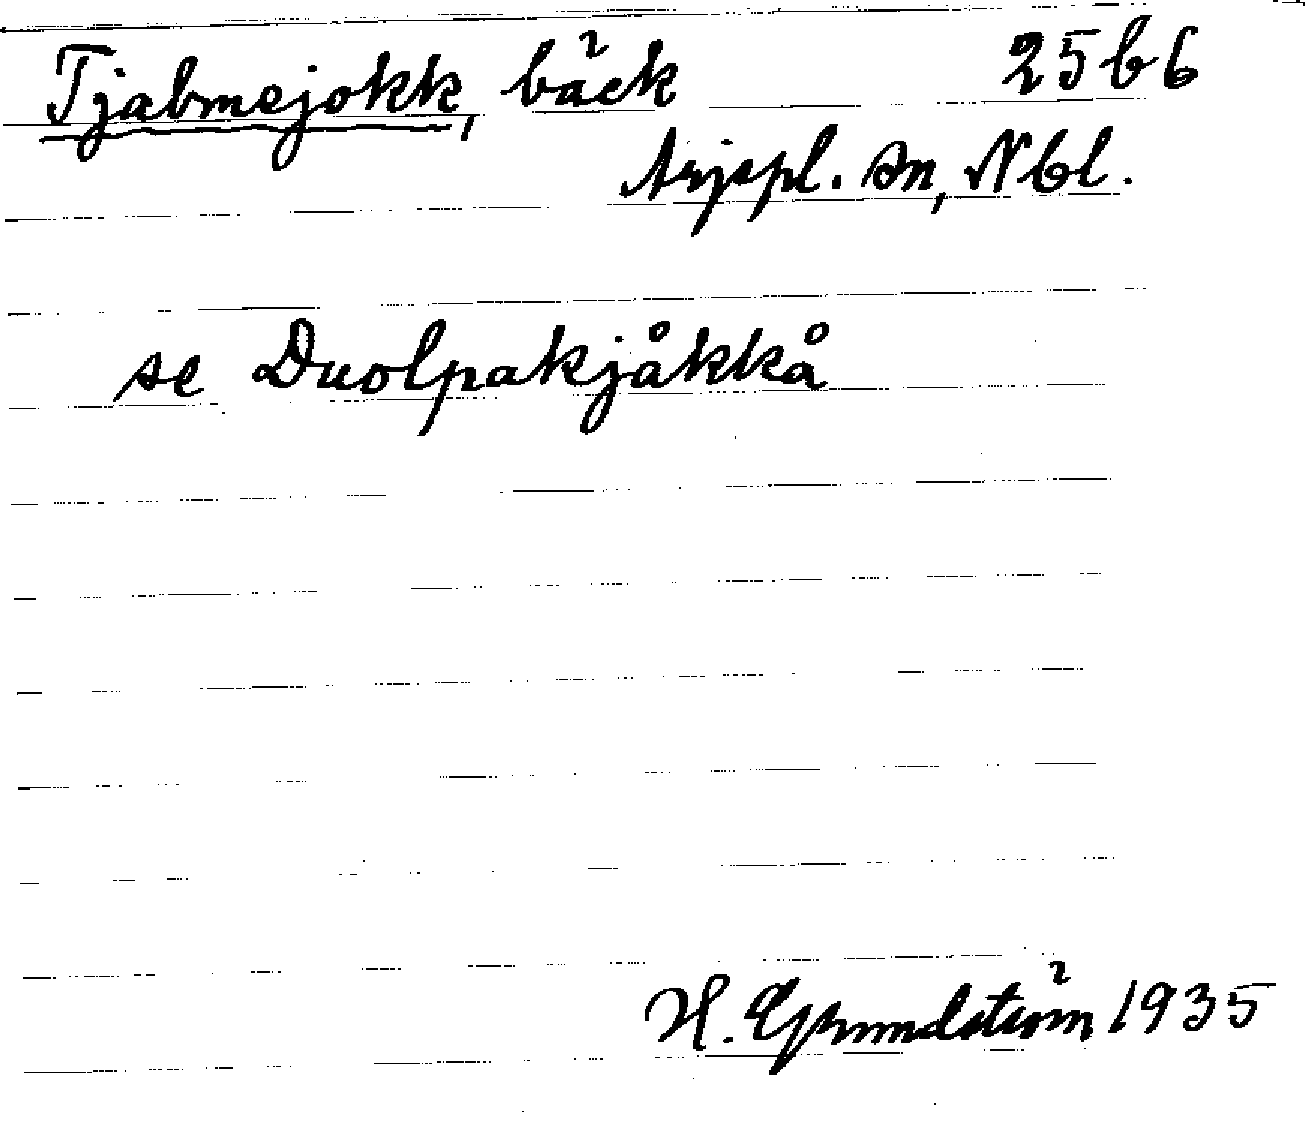 Tjabmejokk, bäck 25b6
Arjepl. sn, Nbl.
se Duolpakjåkkå
H. Grundström 1935